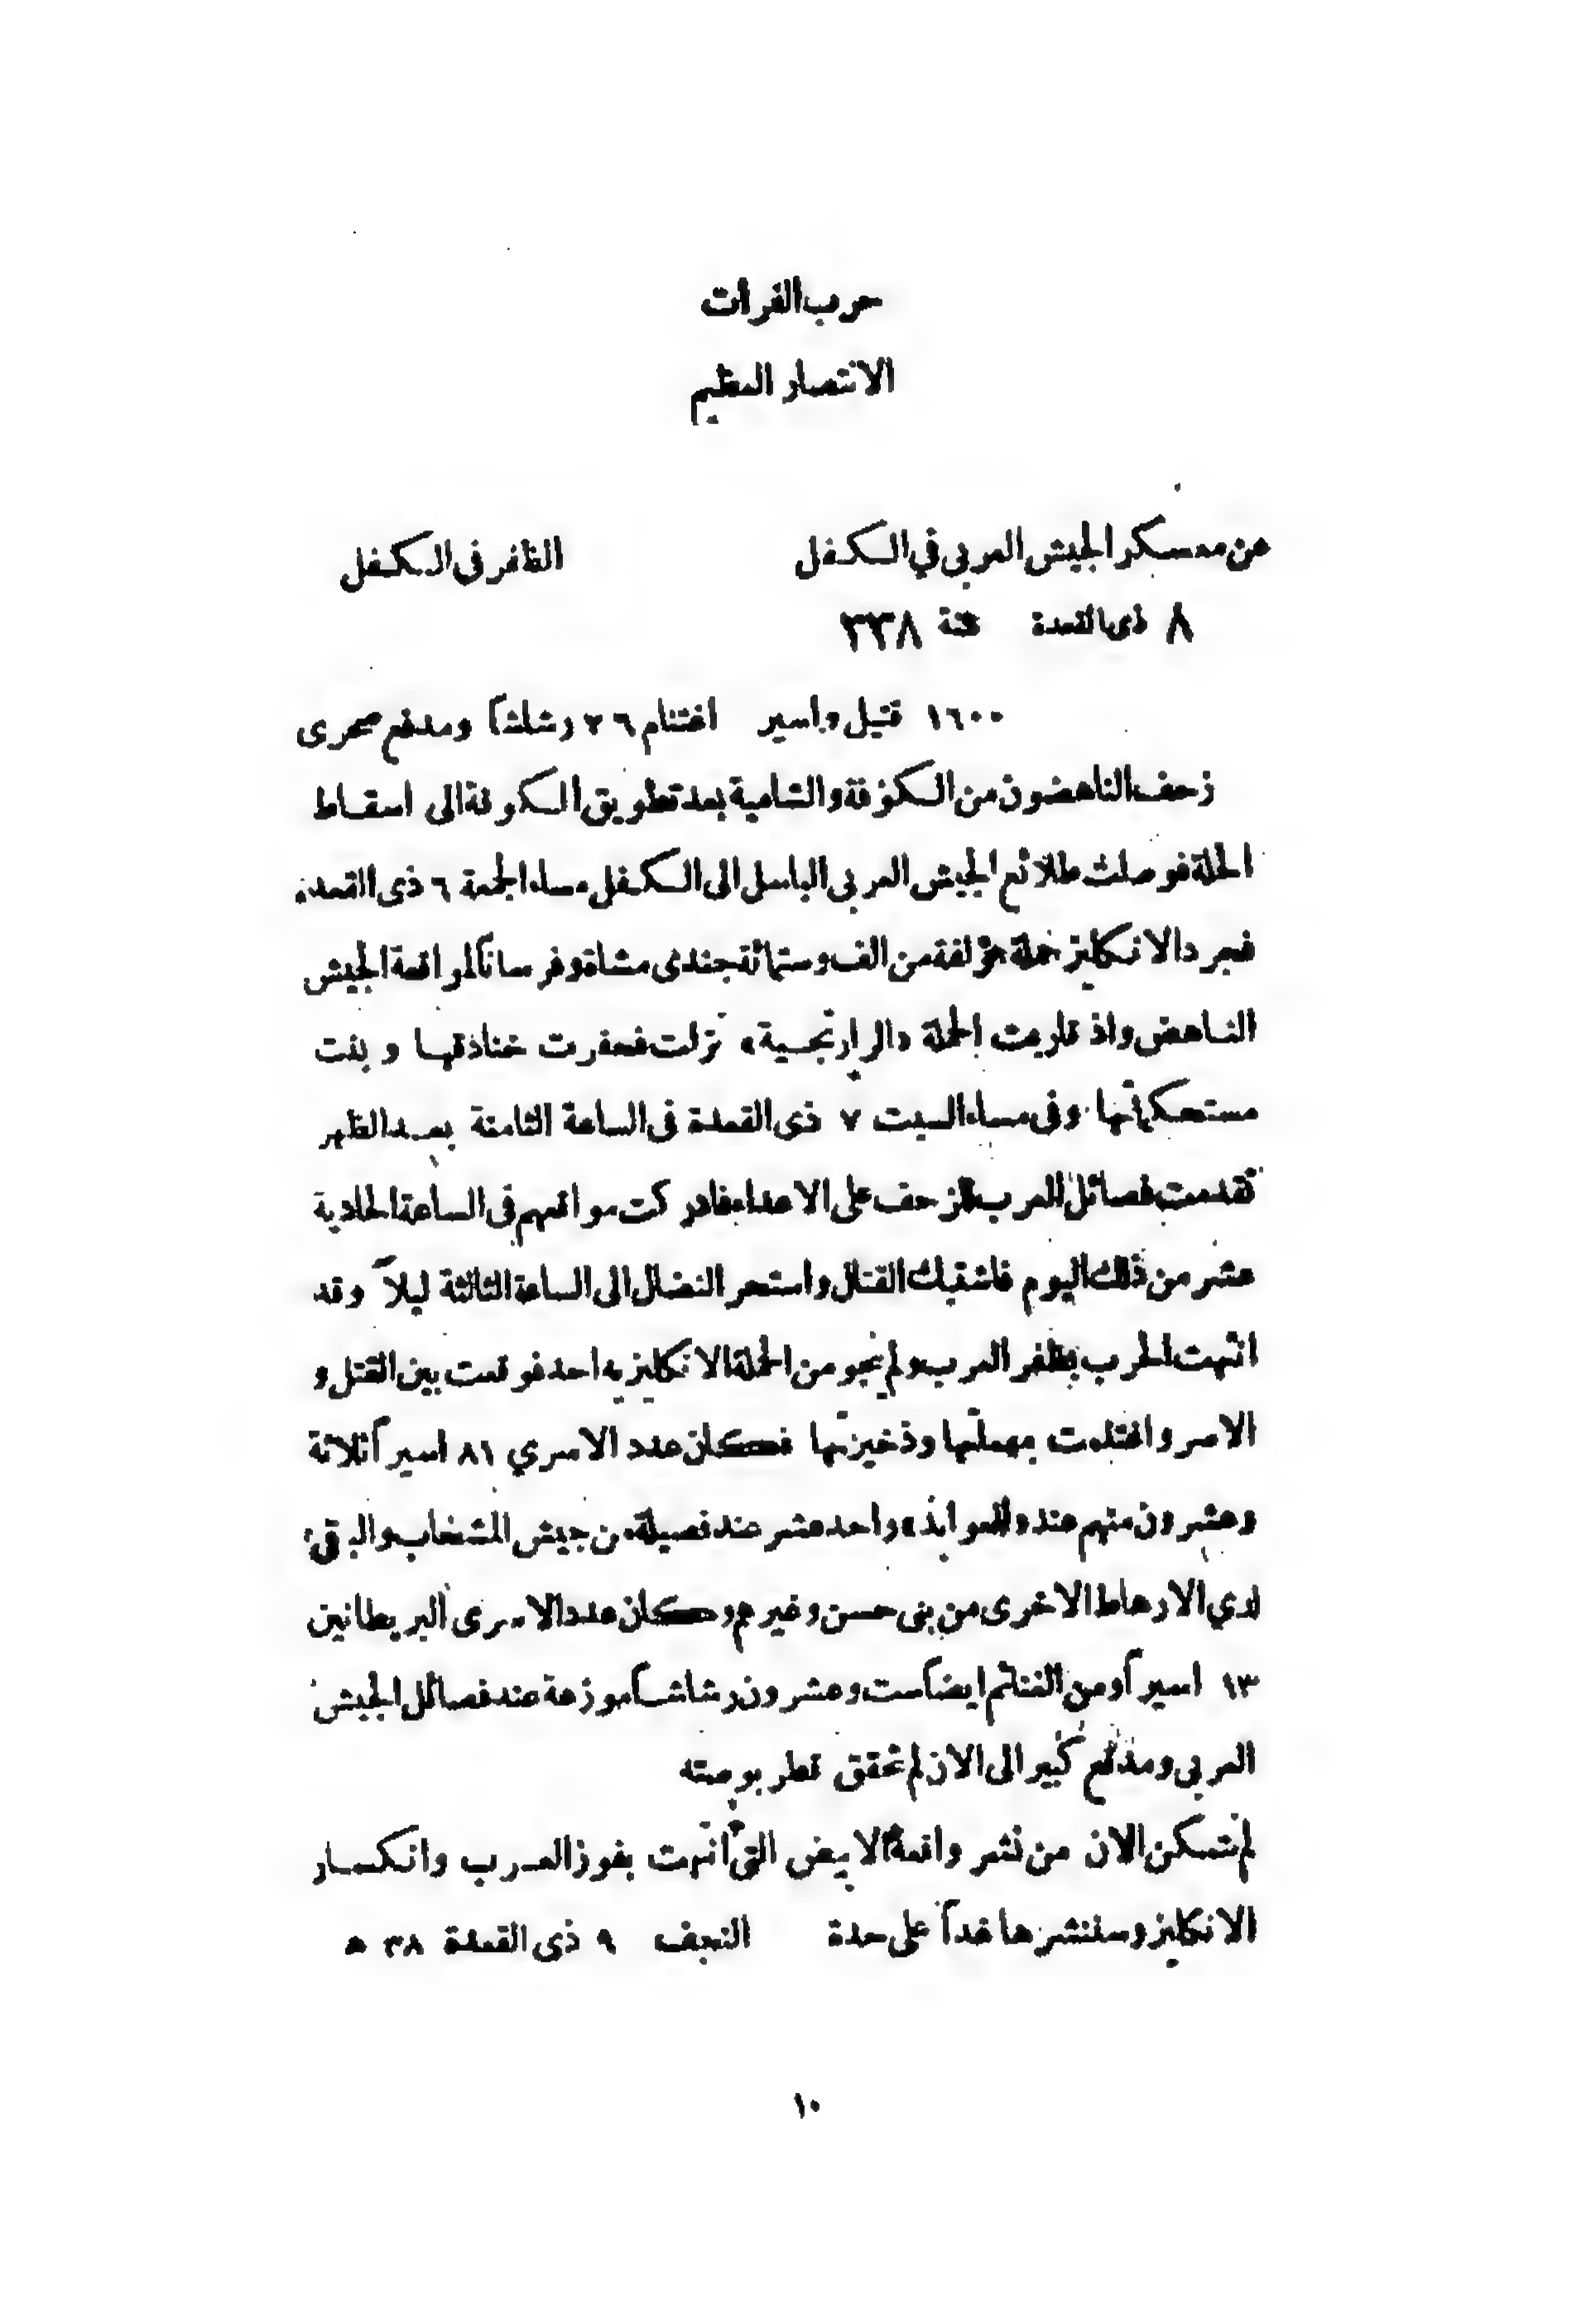 حرب الفرات
الانتصار العظيم
من معسكر الجيش العربى في الكفل الظافر فى الكفل
٨ ذى القعدة سنة ٣٣٨
١٦٠٠ قتيل واسير اغتنام ٢٦ رشاشاً ومدفع صحرى
زحف الناهضون من الكوفة والشامية بعد تطويق الكوفة الى اسقاط
الحلة فوصلت طلائع الجيش العربى الباسل الى الكفل مساء الجمعة ٦ ذى القعدة
فجرد الانكليز حملة مؤلفة من الف وستمائة جندى مشاة وفرساناً لمواقعة الجيش
الناهض واذ قاربت الحملة «الرارنجسية» نزلت فحفرت خنادقها و بنت
مستحكماتها وفى مساء السبت ٧ ذى القعدة فى الساعة الثامنة بعد الظهر
تقدمت فصائل العرب للزحف على الاعداء فادركت مواقعهم فى الساعة الحادية
عشر من ذلك اليوم فاشتبك القتال واستحر النضال الى الساعة الثالثة ليلاً وقد
انتهت الحرب بظفر العرب ولم ينجو من الحملة الانكليزيه احد فوقعت بين القتل و
الاسر واغتنمت بهملتها وذخيرتها فكان عدد الاسري ٨١ اسيراً ثلاثة
وعشرون منهم عند «العوابد» واحد عشر عند فصيلة من جيش المشخاب والباقى
لدي الارهاط الاخرى من بنى حسن وغيرهم وكان عدد الاسرى البريطانين
١٣ اسيراً ومن الغنائم ايضاً ست وعشرون رشاشاً موزعة عند فصائل الجيش
العربى ومدفع كبير الى الان لم نحقق قطر بوصته
لم نتمكن الان من نشر واقعة الابيض التى انتهت بفوز العرب وانكسار
الانكليز وسننشرها غداً على حدة النجف ٩ ذى القعدة ٣٨ ه
١٠